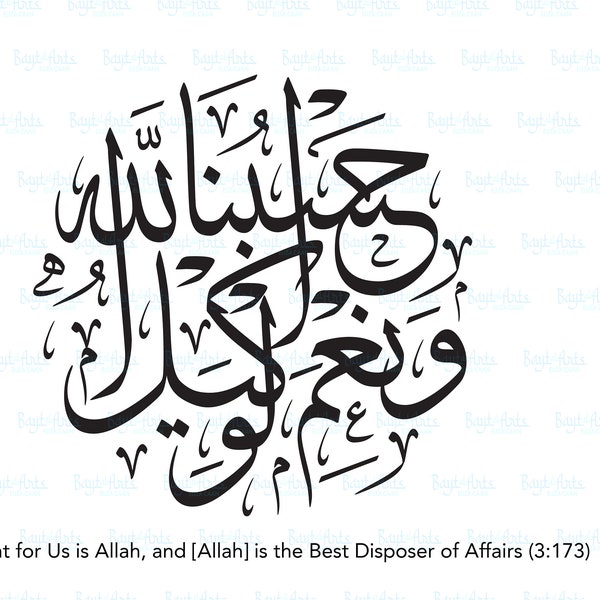 حَسْبُنَا اللَّهُ
وَنِعْمَ الْوَكِيلُ
t for Us is Allah, and [Allah] is the Best Disposer of Affairs (3:173)
Bayt & Arts